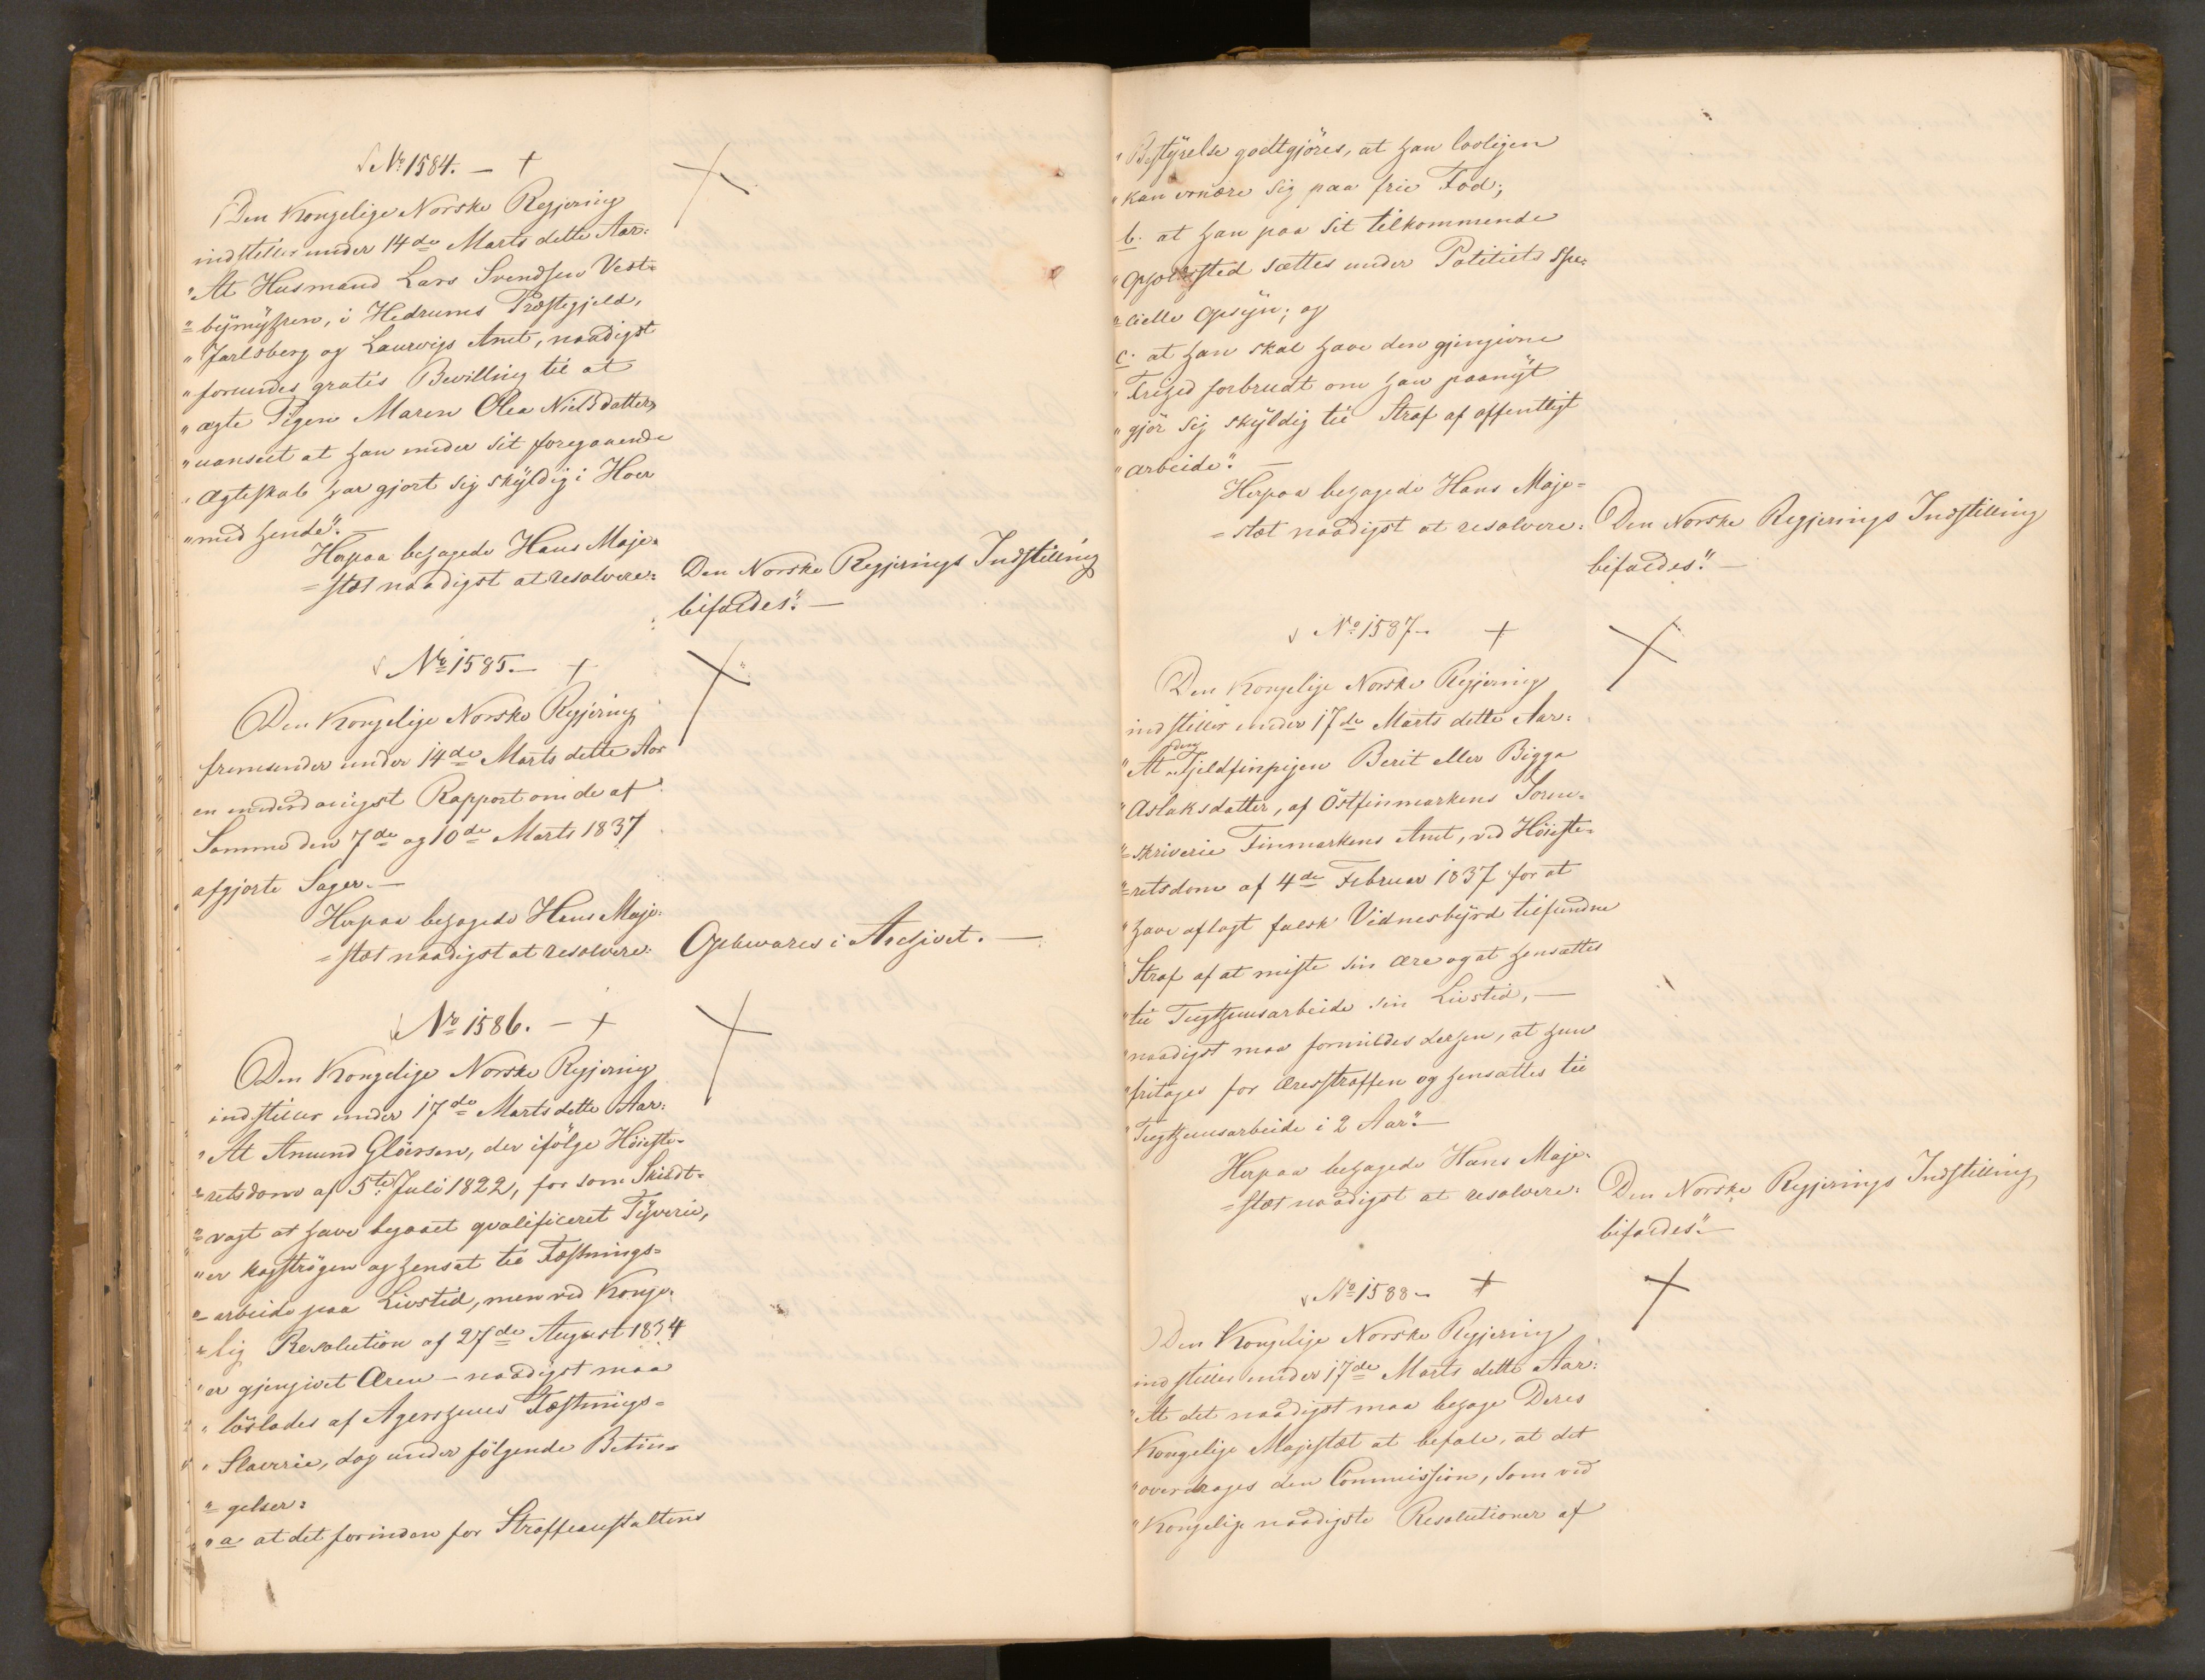 No. 1584. — +
Den Kongelige Norske Regjering
indstiller under 14de Marts dette Aar:
"At Husmand Lars Svendsen Vest=
"=bymyhren, i Hedrums Præstegjeld,
"Jarlsberg og Laurvigs Amt, naadigst
"forundes gratis Bevilling til at
"ægte Pigen Maren Olea Nielsdatter,
"uanseet at han under sit foregaaende
"Ægteskab har gjort sig skyldig i Hoer
"med hende". —
Herpaa behagede Hans Maje=
=stæt naadigst at resolvere:
Den Norske Regjerings Indstilling
bifaldes". —
No. 1585. — +
Den Kongelige Norske Regjering
fremsender under 14de Marts dette Aar
en underdanigst Rapport om de af
Samme den 7de og 10de Marts 1837
afgjorte Sager. —
Herpaa behagede Hans Maje=
=stæt naadigst at resolvere:
Opbevares i Archivet. —
No. 1586. — +
Den Kongelige Norske Regjering
indstiller under 17de Marts dette Aar:
"At Amund Glörsen, der ifølge Höieste=
"=retsdom af 5te Juli 1822, for som Skildt=
"=vagt at have begaaet qvalificeret Tyverie,
"er kagströgen og hensat til Fæstnings=
"=arbeide paa Livstid, men ved Konge=
"=lig Resolution af 27de August 1834
"er gjengivet Æren – naadigst maa
"löslades af Agershuus Fæstnings=
"Slaverie, dog under fölgende Betin=
"=gelser:
"a at det forinden for Straffeanstaltens
"Bestyrelse godtgjöres, at han lovligen
"kan ernære sig paa frie Fod;
b. at han paa sit tilkommende
"Opholdssted sættes under Politiets spe=
"=cielle Opsyn; og
c. at han skal have den gjengivne
"Frihed forbrudt om han paanyt
"gjör sig skyldig til Straf af offentligt
"Arbeide". —
Herpaa behagede Hans Maje=
=stæt naadigst at resolvere:
Den Norske Regjerings Indstilling
bifaldes". —
No. 1587 — +
Den Kongelige Norske Regjering
indstiller under 17de Marts dette Aar:
"At den Fjeldfinpigen Berit eller Bigga
"Aslaksdatter, af Östfinmarkens Soren=
"=skriverie Finmarkens Amt, ved Höieste=
"=retsdom af 4de Februar 1837 for at
"have aflagt falsk Vidnesbyrd tilfundne
Straf af at miste sin Ære og at hensættes
"til Tugthuusarbeide sin Livstid, —
"naadigst maa formildes derhen, at hun
"fritages for Æresstraffen og hensættes til
"Tugthuusarbeide i 2 Aar". —
Herpaa behagede Hans Maje=
=stæt naadigst at resolvere:
Den Norske Regjerings Indstilling
bifaldes". —
No. 1588 — +
Den Kongelige Norske Regjering
indstiller under 17de Marts dette Aar:
"At det naadigst maa behage Deres
Kongelige Majestæt at befale, at det
"overdrages den Commission, som ved
"Kongelige naadigste Resolutioner af